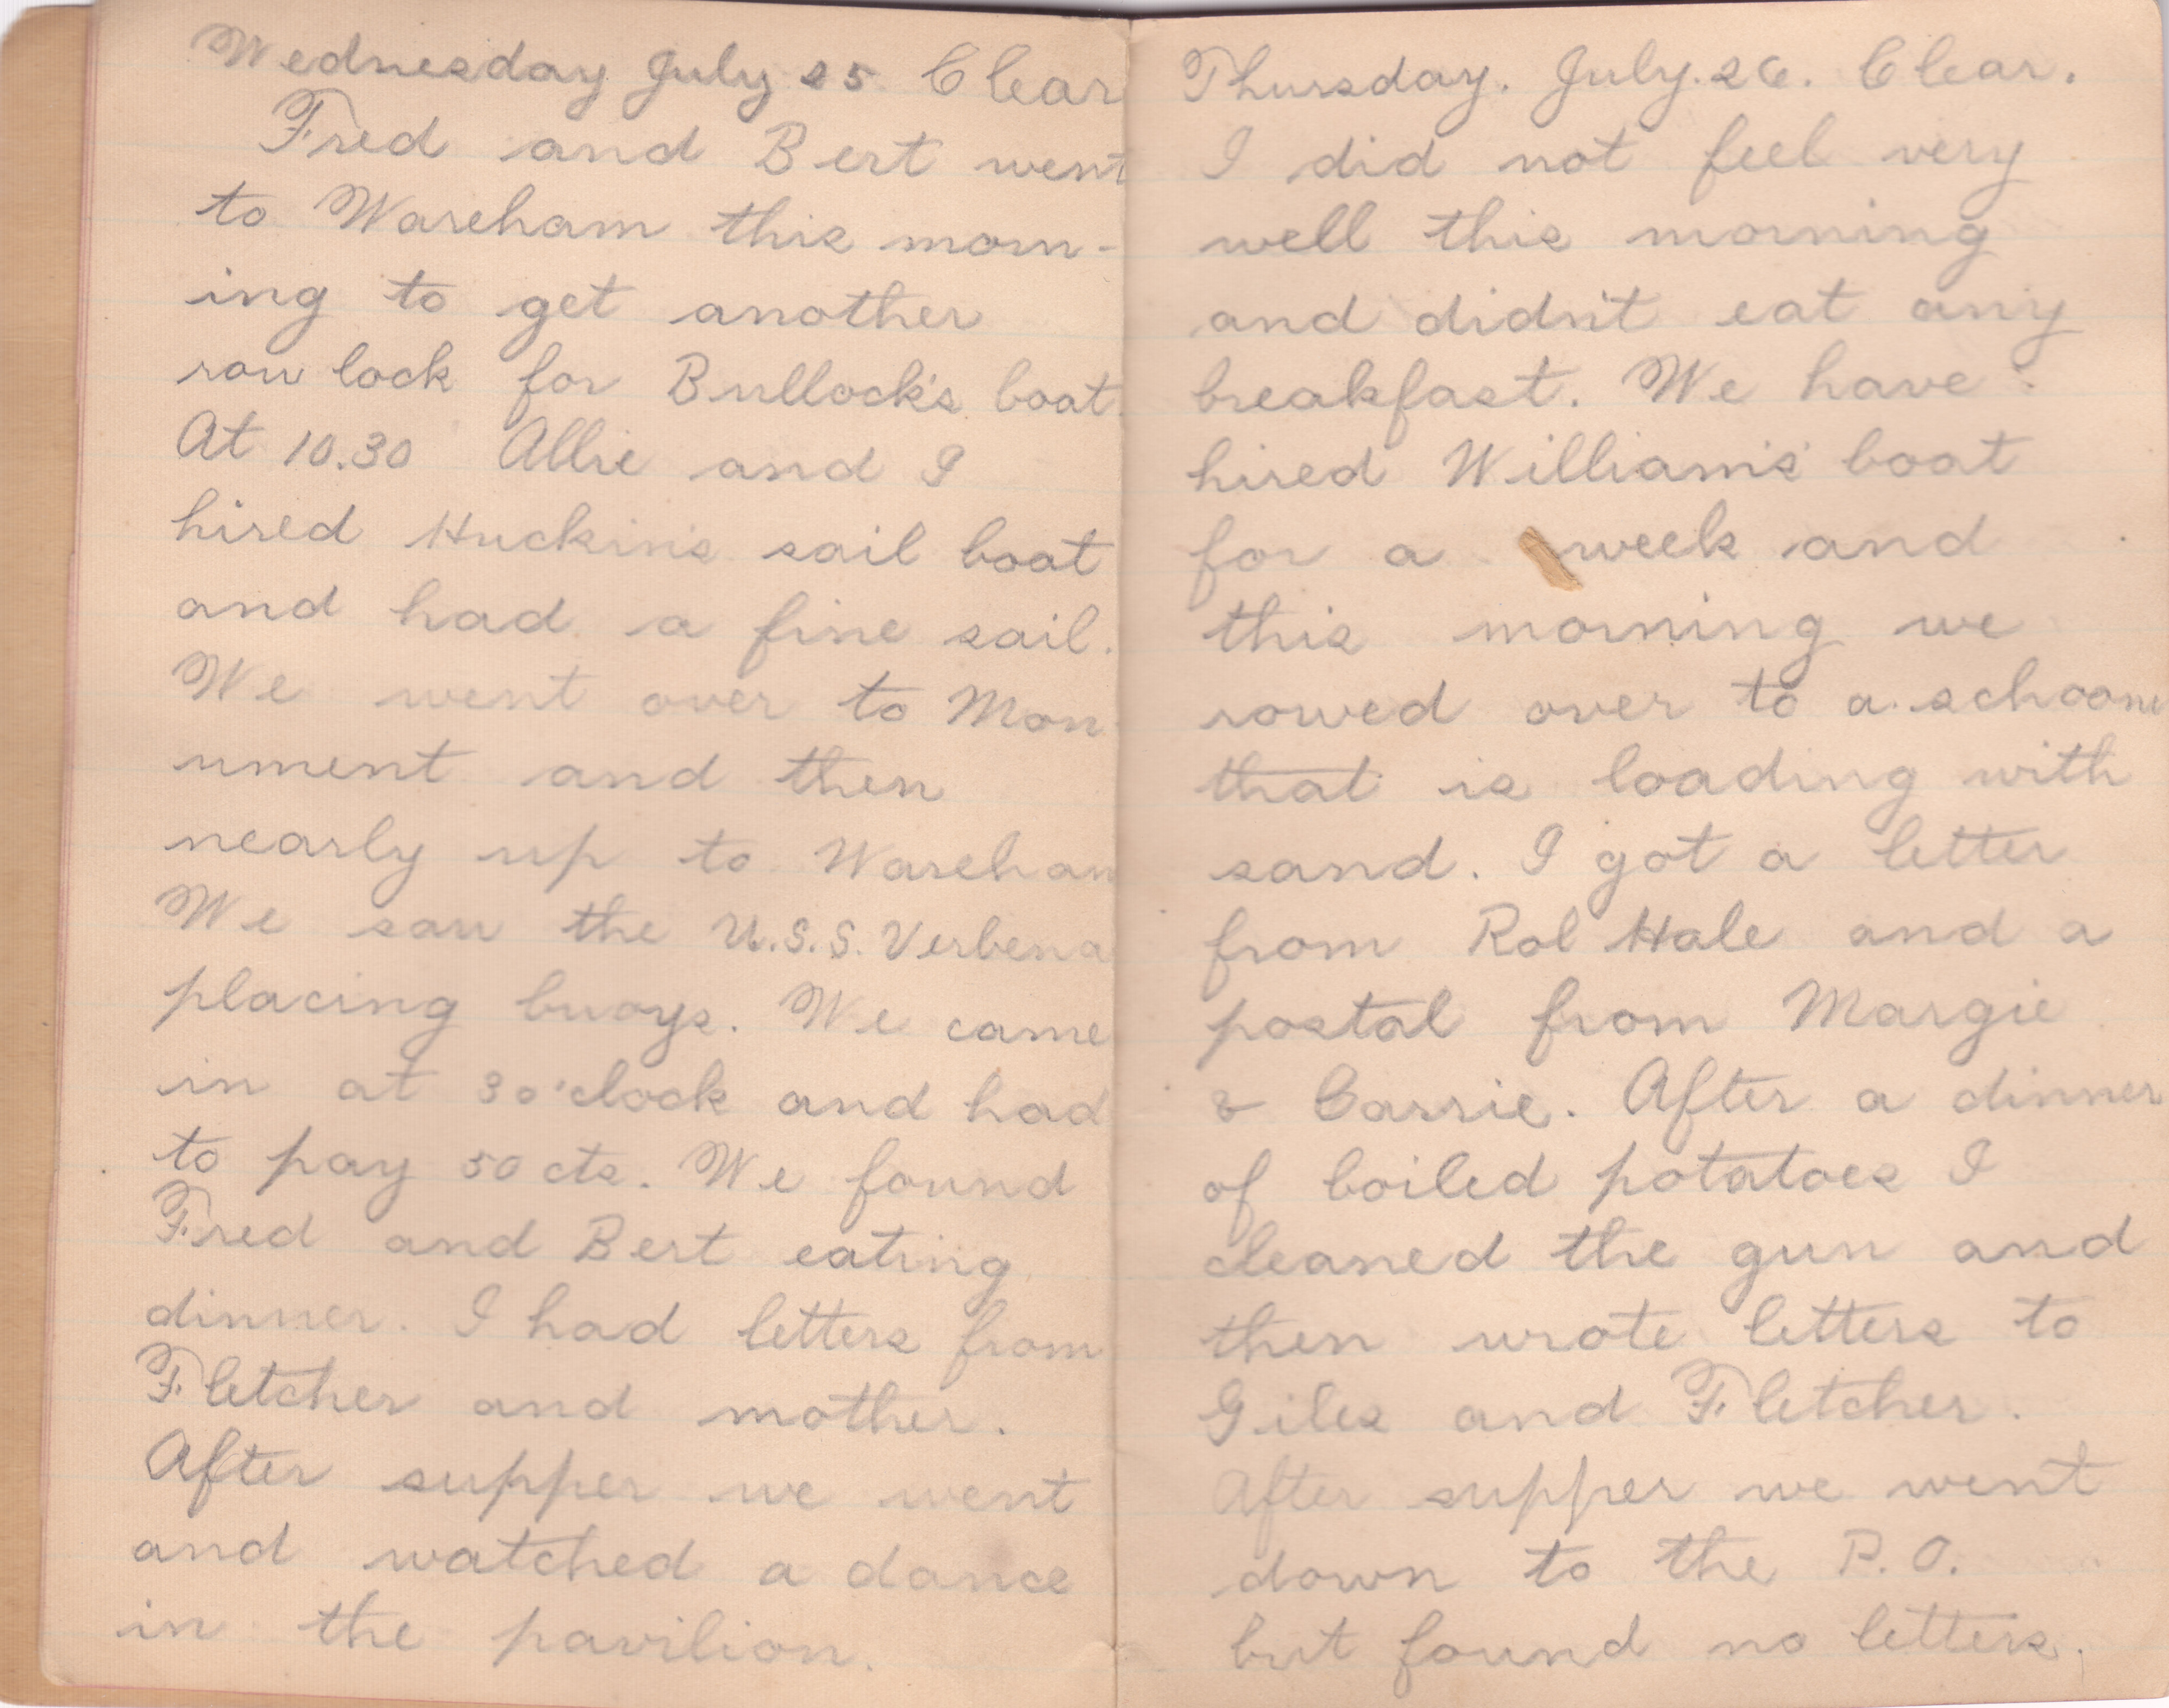 Wednesday July 25 Clear
Fred and Bert went
to Wareham this morn-
ing to get another
row lock for Bullock's boat.
At 10.30 Allie and I
hired Huckin's sail boat
and had a fine sail.
We went over to Mon
ument and then
nearly up to Wareham
We saw the U.S.S. Verbena
placing buoys. We came
in at 3 o'clock and had
to pay 50 cts. We found
Fred and Bert eating
dinner. I had letters from
Fletcher and mother.
After supper we went
and watched a dance
in the pavilion.
Thursday. July. 26. Clear.
I did not feel very
well this morning
and didn't eat any
breakfast. We have
hired William's boat
for a week and
this morning we
rowed over to a schooner
that is loading with
sand. I got a letter
from Rol Hale and a
postal from Margie
& Carrie. After a dinner
of boiled potatoes I
cleaned the gun and
then wrote letters to
Giles and Fletcher.
After supper we went
down to the P.O.
but found no letters.